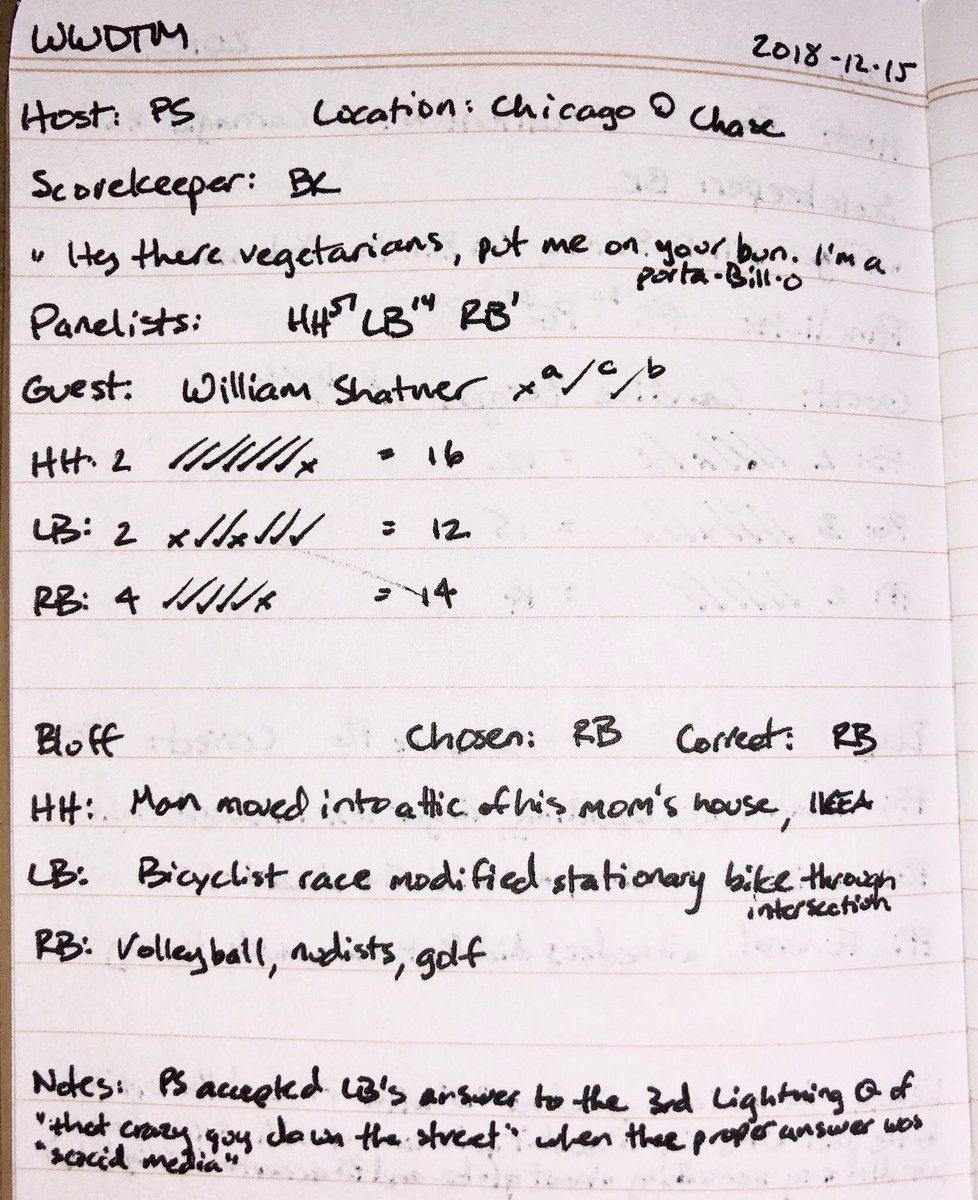 WWDTM 2018-12-15
Host: PS Location: Chicago @ Chase
Scorekeeper: BK
" Hey there vegetarians, put me on your bun. I'm a
porta-Bill-o
Panelists: HH⁵⁷ LB¹⁴ RB¹
Guest: William Shatner ×ᵃ ✓ᶜ ✓ᵇ
HH: 2 ✓✓✓✓✓✓✓× = 16
LB: 2 ×✓✓×✓✓✓ = 12
RB: 4 ✓✓✓✓✓× = 14
Bluff Chosen: RB Correct: RB
HH: Man moved into attic of his mom's house, IKEA
LB: Bicyclist race modified stationary bike through
intersection
RB: Volleyball, nudists, golf
Notes: PS accepted LB's answer to the 3rd Lightning Q of
"that crazy guy down the street" when thee proper answer was
"social media"